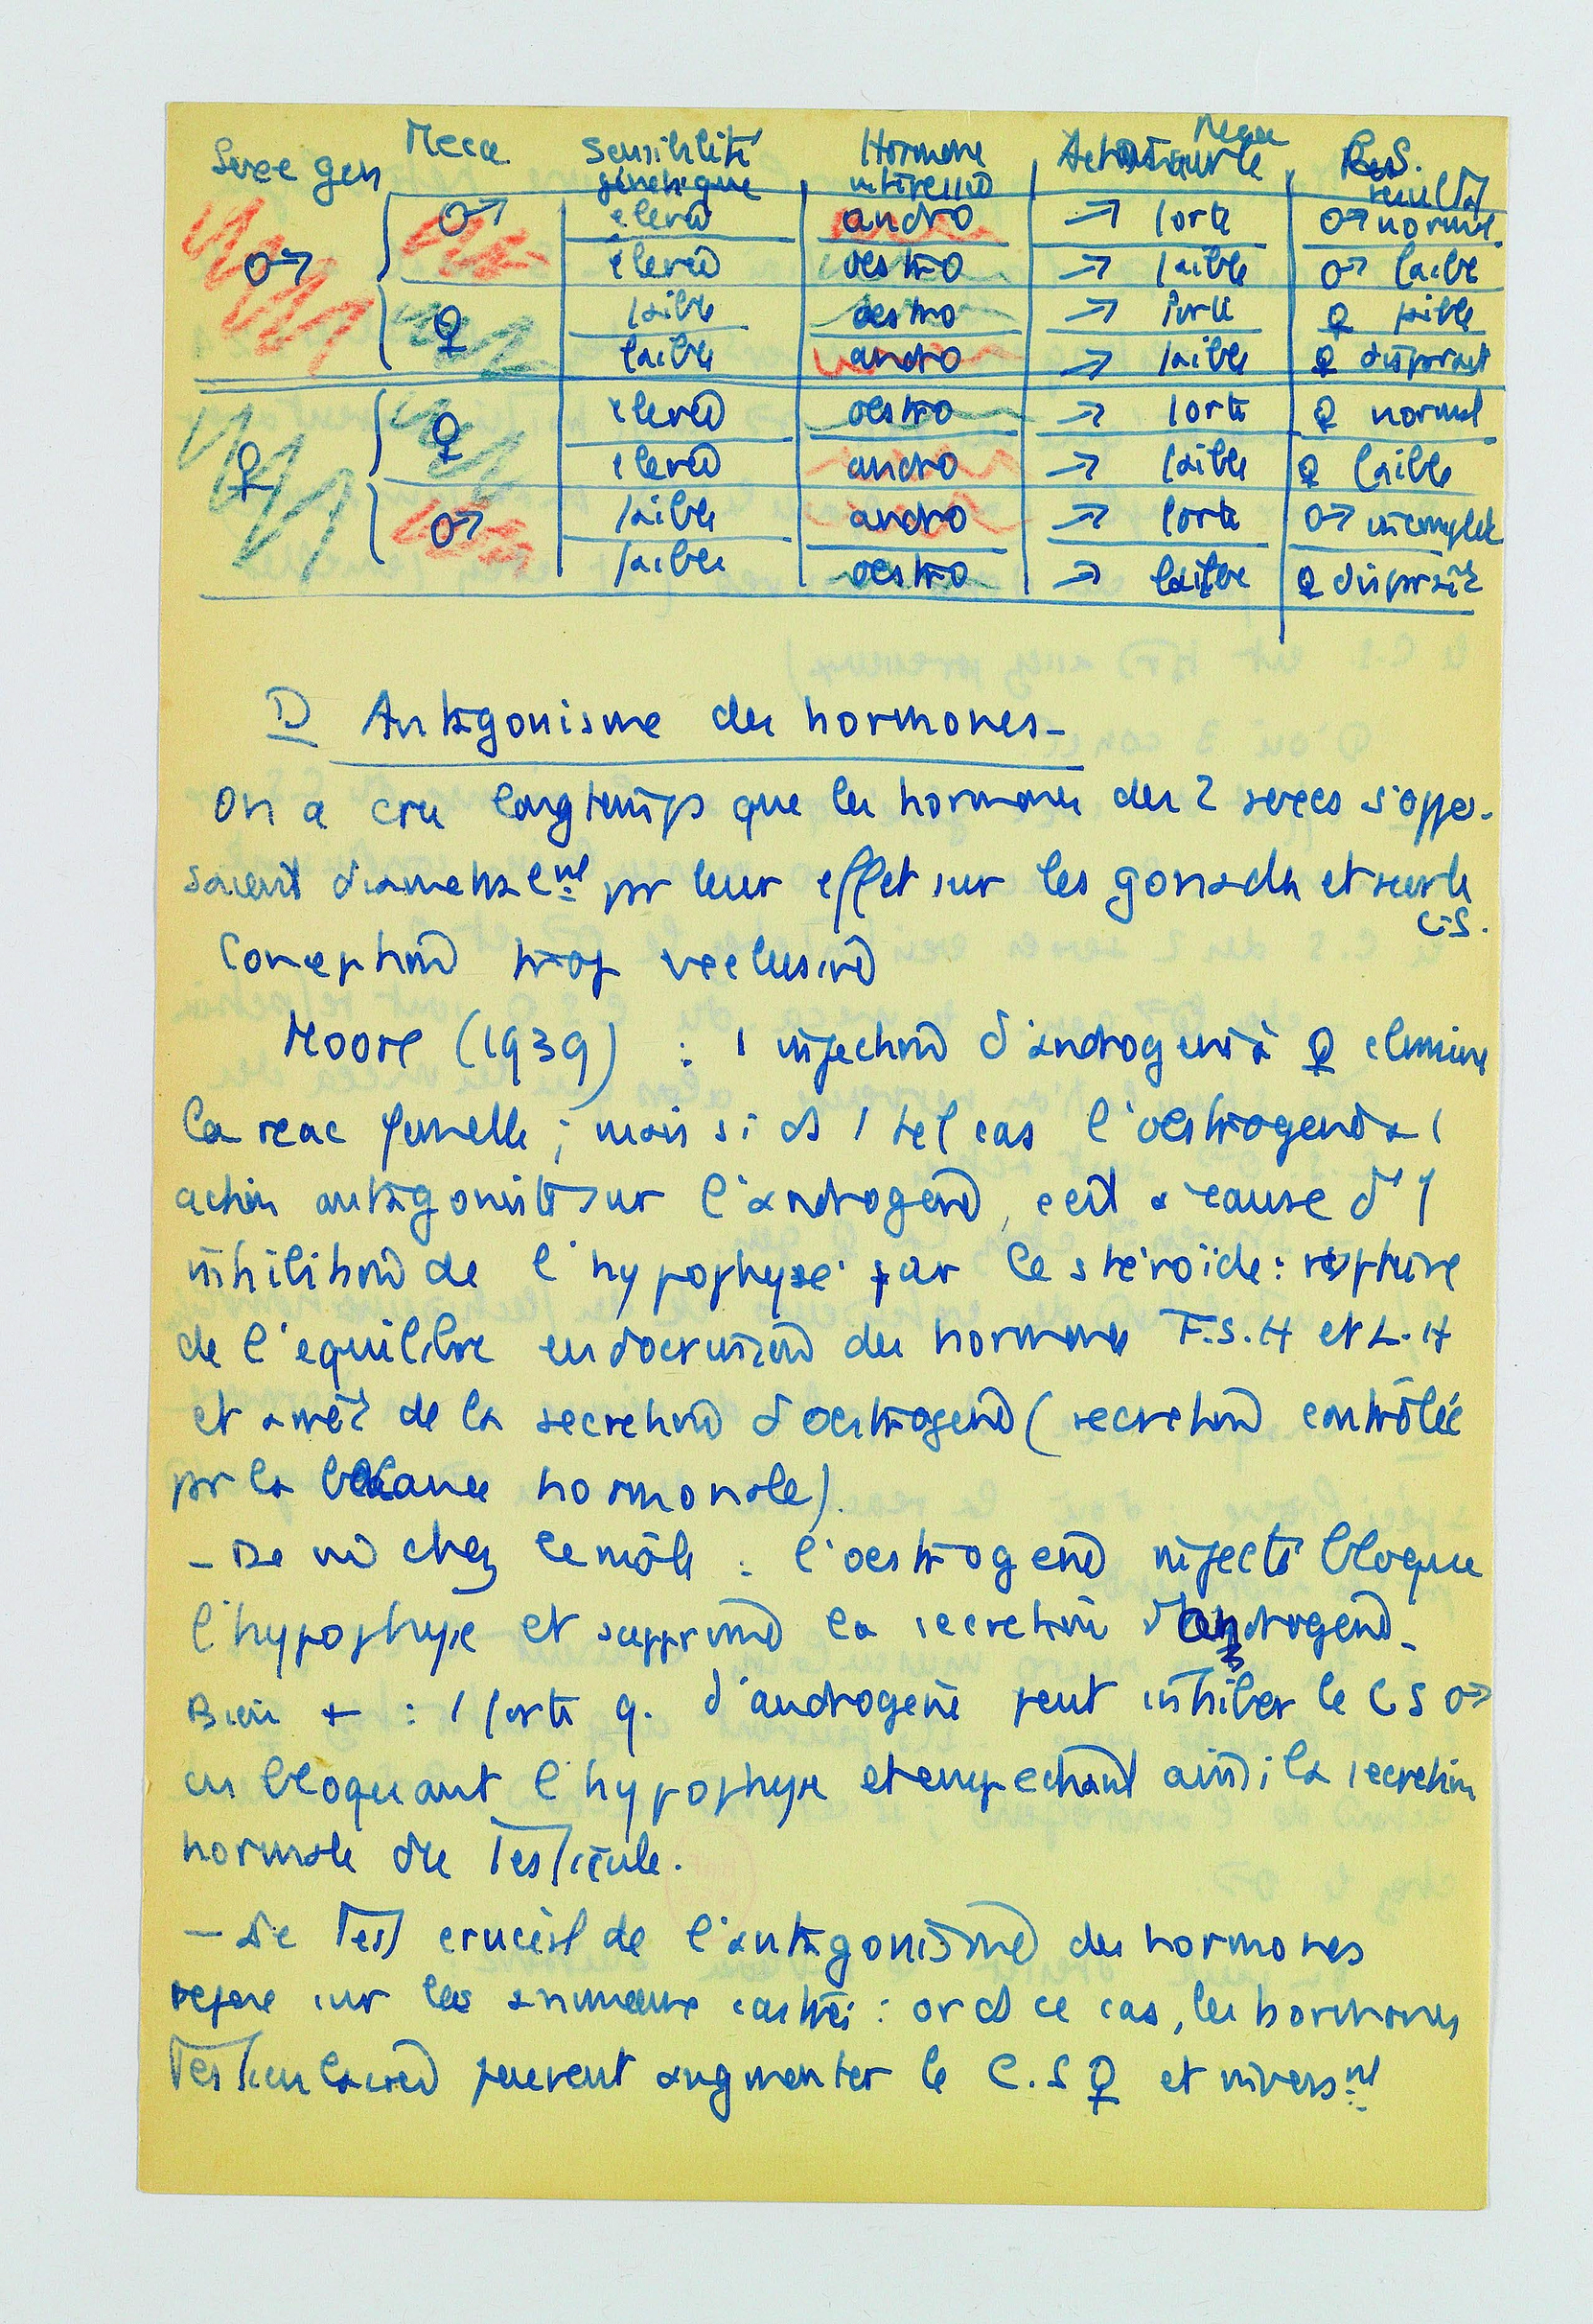 Sexe gen Meca sensibilité génétique Hormone Action sur le Meca C.S. resultat
♂ ♂ elevée andro → forte ♂ normal.
elevée oestro → faible ♂ faible
♀ faible oestro → forte ♀ faible
faible andro → faible ♀ disparait
♀ ♀ elevée oestro → forte ♀ normal
elevée andro → faible ♀ faible
♂ faible andro → forte ♂ incomplet
faible oestro → faible ♀ disparait
D Antagonisme des hormones-
On a cru longtemps que les hormones des 2 sexes s'oppo-
saient diametralement pr leur effet sur les gonades et sur le
C.S.
Conception trop exclusive
Moore (1939) : 1 injection d'androgène à ♀ elimine
la reac femelle ; mais si ds 1 tel cas l'oestrogène a 1
action antagoniste sur l'androgène, c'est à cause d'1
inhibition de l'hypophyse par le stéroïde : rupture
de l'equilibre endocrinien des hormones F.S.H et L.H
et arrêt de la secretion d'oestrogène (secretion contrôlée
pr la balance hormonale).
- De m chez le mâle : l'oestrogène injecté bloque
l'hypophyse et supprime la secretion d'androgène.
Bien + : 1 forte q. d'androgène peut inhiber le CS ♂
en bloquant l'hypophyse et empechant ainsi la secretion
normale du Testicule.
- Le Test crucial de l'antagonisme des hormones
repose sur les animaux castrés : or ds ce cas, les hormones
Testiculaires peuvent augmenter le C.S ♀ et inversmt